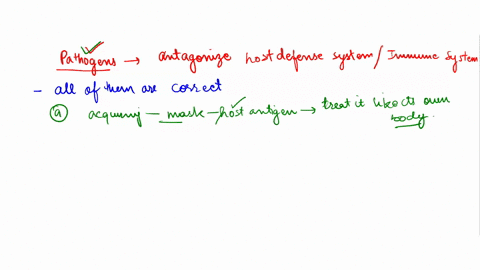 Pathogens → antagonize host defense system / Immune System
- all of them are correct
ⓐ acquiring — mask — host antigen → treat it like its own body.